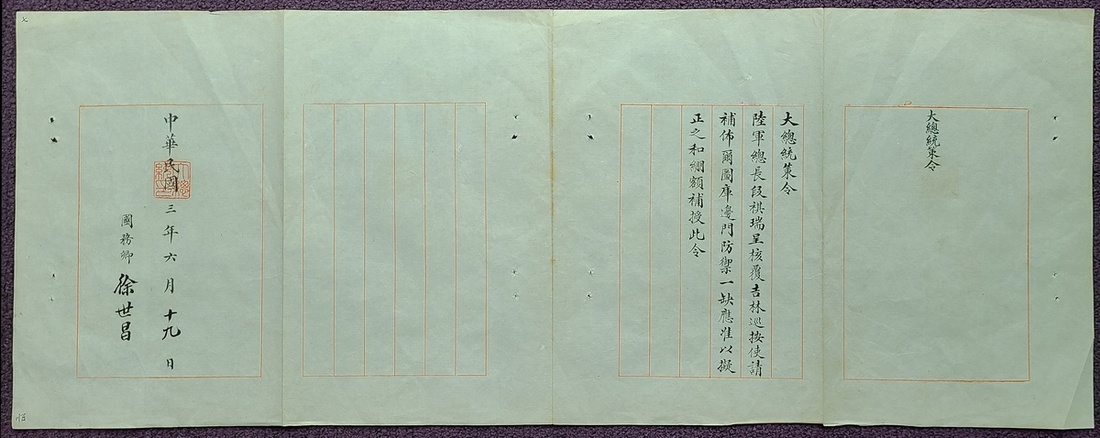 大總統策令
大總統策令
陸軍總長段祺瑞呈核覆吉林巡按使請
補佈爾圖庫邊門防禦一缺應准以擬
正之和綳額補授此令
中華民國三年六月十九日
國務卿 徐世昌